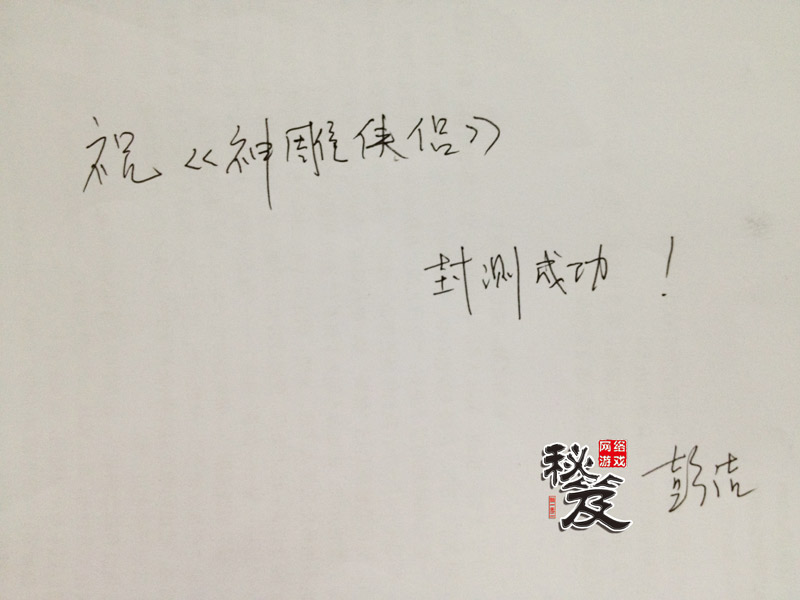 祝《神雕侠侣》
封测成功！
网络
游戏
秘笈
彭洁